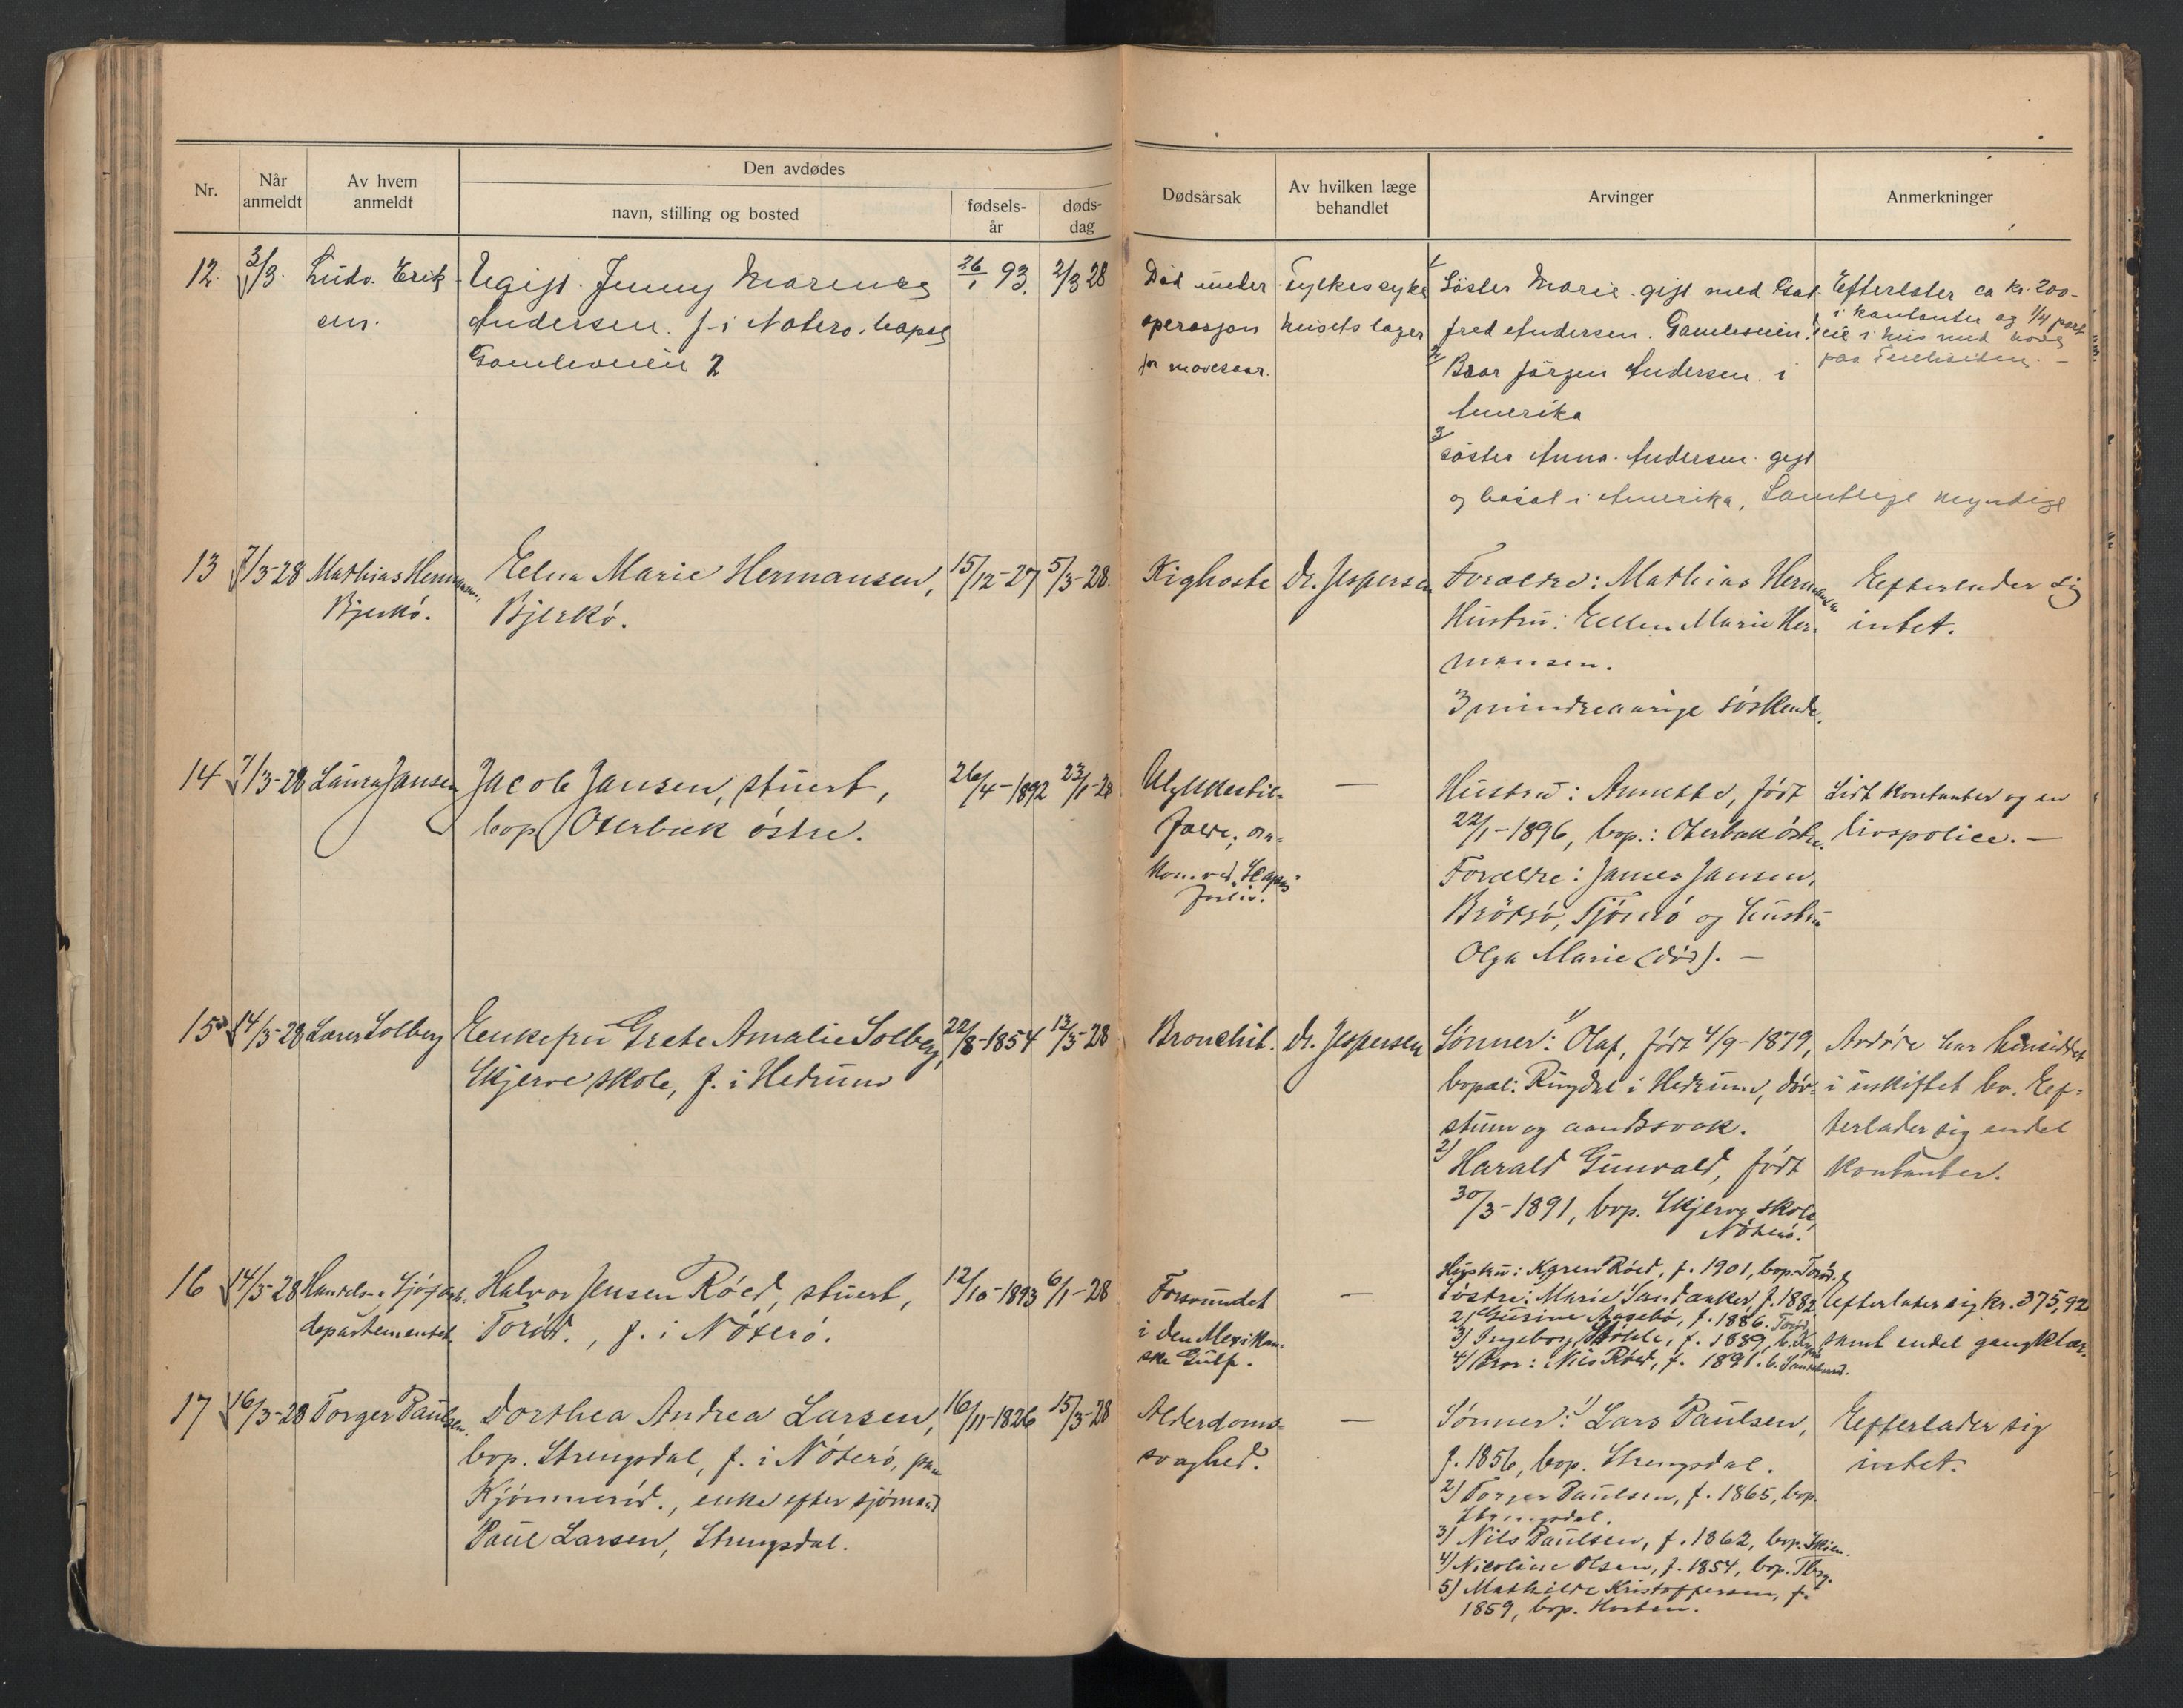 Nr.
Når anmeldt
Av hvem anmeldt
Den avdødes
navn, stilling og bosted
fødsels-år
døds-dag
Dødsårsak
Av hvilken læge behandlet
Arvinger
Anmerkninger
12. 3/3. Ludv. Erik
sen.
Ugift. Jenny
Andersen. f. i Nøterø. bopel
Gamleveien 2
26/1 93. 2/3 28
Død under
operasjon
for mavesaar.
Fylkessyke
husets læger
1/ Søster Marie gift med
fred Andersen. Gamleveien.
2/ Bror Jörgen Andersen. i
Amerika
3/ søster Anna Andersen gift
og bosat i Amerika, Samtlige myndige
Efterlater ca kr. 200-
i kontanter og 1/4 part
i hus med
paa
13 7/3-28 Mathias Hermansen,
Bjerkö.
Eelna Marie Hermansen,
Bjerkö.
15/12-27 5/3-28.
Kighoste Dr. Jespersen
Forældre: Mathias Hermansen
Hustru: Ellen Marie Her-
mansen.
3 mindreaarige söskende.
Efterlader sig
intet.
14 7/3-28 Laura Jansen
Jacob Jansen, stuert,
bop. Oterbæk östre.
26/4-1892 23/1-28
Ulykkestil-
fælde, om-
kom ved
forlis.
—
Hustru: Annette, född
22/1-1896, bop.: Oterbæk östre.
Forældre: James Jansen,
Brötsö, Tjömö og hustru
Olga Marie (död). —
Lidt kontanter og en
livspolice. —
15 14/3-28 Lærer Solberg
Enkefru Grete Amalie Solberg,
Skjerve skole, f. i Hedrum
22/8-1854 13/3-28
Bronchit. Dr. Jespersen
Sønner: 1/ Olaf, født 4/9-1879,
bopæl: Ringdal i Hedrum, döv-
stum og aandssvak.
2) Harald Gunvald, født
30/3-1891, bop. Skjerve skole,
Nöterö.
Avdöde har hensiddet
i uskiftet bo. Eef-
terlader sig endel
kontanter.
16 14/3-28 Handels- & Sjöfarts-
departementet.
Halvor Jensen Röed, stuert,
Toröd., f. i Nöterö.
12/10-1893 6/1-28
Forsvundet
i den Mexikan-
ske Gulf.
—
Hustru: Karen Röed, f. 1901, bop. Toröd.
Söstre: Marie Sandanker, f. 1882
2/ Gurine Aasebö, f. 1886. Toröd.
3) Ingeborg f. 1889, b.
4/ Bror: Nils Röed, f. 1891. b.
Efterlater sig kr. 375,92
samt endel gangklær.
17 16/3-28 Torger Paulsen.
Dorthea Andrea Larsen,
bop. Strengsdal, f. i Nöterö, paa
Kjönneröd., enke efter sjömand
Paul Larsen, Strengsdal.
16/11-1826 15/3-28
Alderdoms-
svaghed.
—
Sønner: 1/ Lars Paulsen,
f. 1856, bop. Strengsdal.
2) Torger Paulsen, f. 1865, bop.
Strengsdal.
3) Nils Paulsen, f. 1862, bop. Skien.
4) Nicoline Olsen, f. 1854, bop. Tbrg.
5) Mathilde Kristoffersen, f.
1859, bop. Horten.
Efterlader sig
intet.